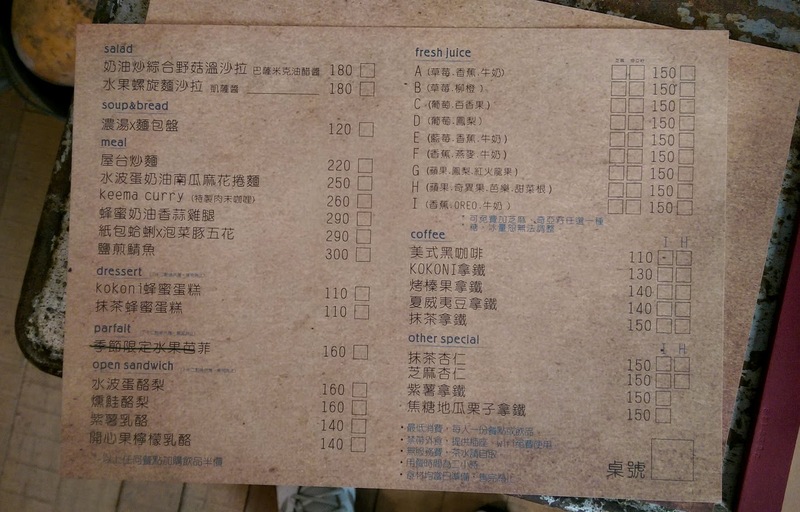 salad
奶油炒綜合野菇溫沙拉 巴薩米克油醋醬 180
水果螺旋麵沙拉 凱薩醬 180
soup&bread
濃湯x麵包盤 120
meal
屋台炒麵 220
水波蛋奶油南瓜麻花捲麵 250
keema curry (特製肉末咖哩) 260
蜂蜜奶油香蒜雞腿 290
紙包蛤蜊x泡菜豚五花 290
鹽煎鯖魚 300
dressert
kokoni蜂蜜蛋糕 110
抹茶蜂蜜蛋糕 110
parfait
季節限定水果芭菲 160
open sandwich
水波蛋酪梨 160
燻鮭酪梨 160
紫薯乳酪 140
開心果檸檬乳酪 140
任何餐點加購飲品半價
fresh juice
A (草莓.香蕉.牛奶) 150
B (草莓.柳橙) 150
C (葡萄.百香果) 150
D (葡萄.鳳梨) 150
E (藍莓.香蕉.牛奶) 150
F (香蕉.燕麥.牛奶) 150
G (蘋果.鳳梨.紅火龍果) 150
H (蘋果.奇異果.芭樂.甜菜根) 150
I (香蕉.OREO.牛奶) 150
*可免費加芝麻、奇亞籽任選一種
糖、冰量恕無法調整
coffee I H
美式黑咖啡 110
KOKONI拿鐵 130
烤榛果拿鐵 140
夏威夷豆拿鐵 140
抹茶拿鐵 150
other special I H
抹茶杏仁 150
芝麻杏仁 150
紫薯拿鐵 150
焦糖地瓜栗子拿鐵 150
*最低消費，每人一份餐點或飲品
*禁帶外食，提供插座、wifi免費使用
*無服務費，茶水請自取
*用餐時間為二小時
桌號